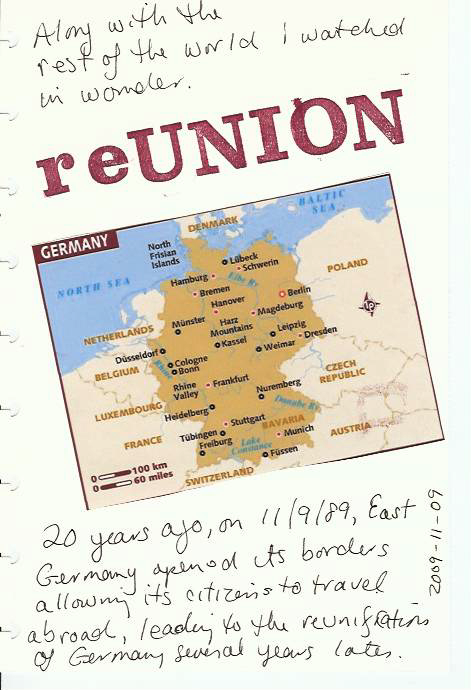 Along with the
rest of the world I watched
in wonder.
reUNION
BALTIC
SEA
DENMARK
GERMANY
North
Frisian
Islands
Lübeck
Schwerin
POLAND
NORTH SEA
Hamburg
Elbe Ry
Bremen
Berlin
Hanover
Magdeburg
NETHERLANDS
Münster
Harz
Mountains
Leipzig
Dresden
Kassel
Weimar
Düsseldorf
Cologne
Bonn
BELGIUM
Rhine
Valley
Frankfurt
CZECH
REPUBLIC
Nuremberg
LUXEMBOURG
Heidelberg
Danube Ry.
Stuttgart
BAVARIA
FRANCE
Tübingen
Munich
AUSTRIA
Freiburg
Lake
Constance
Füssen
SWITZERLAND
0 100 km
0 60 miles
20 years ago, on 11/9/89, East
Germany opened its borders
allowing its citizens to travel
abroad, leading to the reunification
of Germany several years later.
2009-11-09